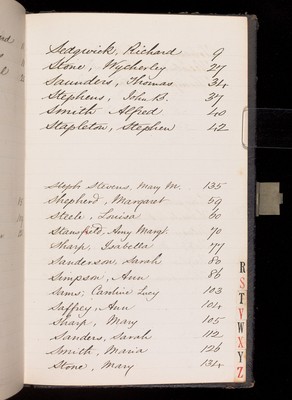 Sedgwick, Richard 9
Stone, Wycherley 27
Saunders, Thomas 34
Stephens, John B. 37
Smith Alfred 40
Stapleton, Stephen 42
Steph Stevens, Mary M. 135
Shepherd, Margaret 59
Steele, Louisa 60
Stansfield, Amy Margt. 70
Sharp, Isabella 77
Sanderson, Sarah 80
Simpson, Ann 86
Sams, Caroline Lucy 103
Saffrey, Ann 104
Sharp, Mary 105
Sanders, Sarah 112
Smith, Maria 126
Stone, Mary 134
R
S
T
V
W
X
Y
Z